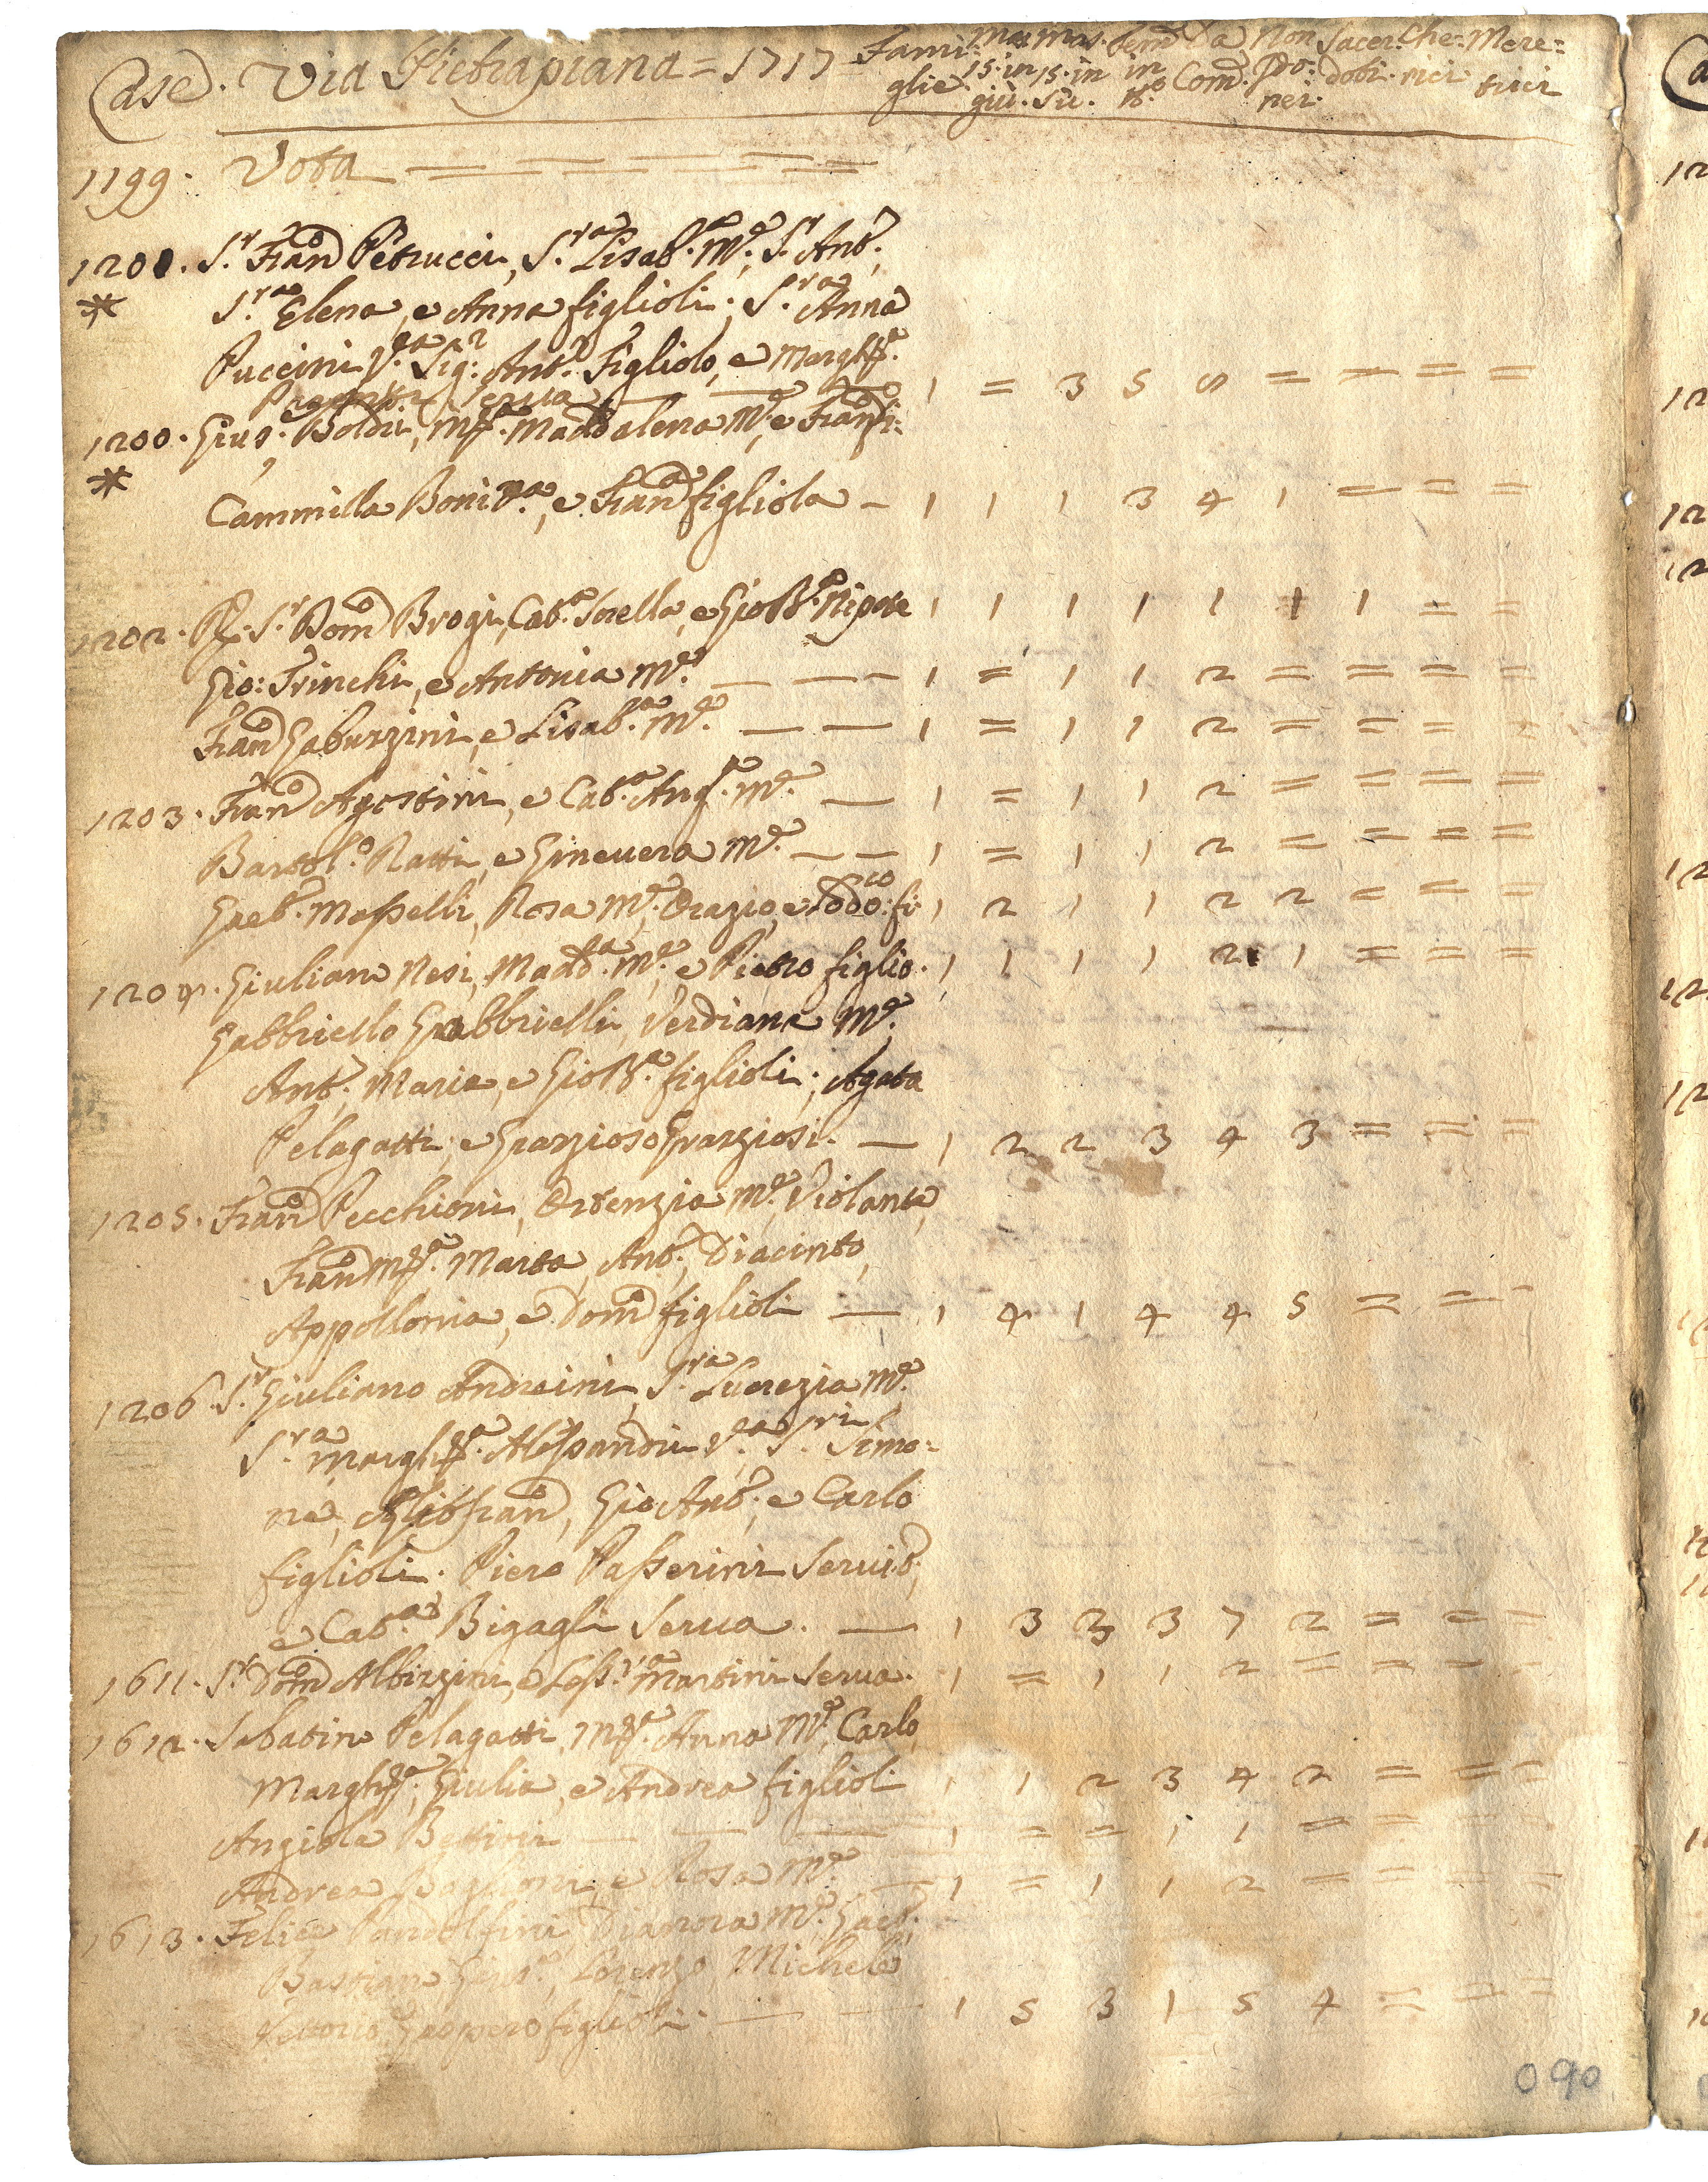 Case. Via Pietrapiana = 1717 = Fami: Mas. Mas. Fem. Da Non Sacer: Che: Mere:
glie 15. in 15. in in Com. Pro: doti. rici trici
giù. Sù. tt.o nei.
1199. Vota = = = = =
1201. S.r Fran.o Petrucci, S.ra Lisab.a M.e, S.r Ant.o,
* S.ra Elena, e Anna figlioli; S.ra Anna
Puccini V.a Sig.r Ant.o Figliolo, e Margh.a
Serva — — 1 = 3 5 8 = = = =
1200. Gius.e Boldi, M.a Maddalena M.e, e Fran.o fi:
* Cammilla Boni V.a, e Fran.a figliola — 1 1 1 3 4 1 = = =
1202. R. S.r Dom.o Brogi, Cat.a Sorella, e Gio Bt.a Nipote 1 1 1 1 1 1 1 = =
Gio: Trinchi, e Antonia M.e — — 1 = 1 1 2 = = = =
Fran.o Gaburzini, e Lisab.a M.e — — 1 = 1 1 2 = = = =
1203. Fran.o Agostini, e Cat.a Ang.a M.e — 1 = 1 1 2 = = = =
Bartol.o Ratti, e Ginevera M.e — — 1 = 1 1 2 = = = =
Gaet.o Masselli, Rosa M.e, Orazio, e Lod.co fi. 1 2 1 1 2 2 = = =
1204. Giuliano Nesi, Madd.a M.e, e Pietro figlio. 1 1 1 1 2 1 = = =
Gabbriello Gabbrielli, Verdiana M.e
Ant.o, Maria, e Gio Bt.a figlioli; Agata
Pelagatti, e Grazioso Graziosi. — 1 2 2 3 4 3 = = =
1205. Fran.o Pecchioni, Ortenzia M.e, Violante,
Fran.o M.a Marta, Ant.o, Diacinto,
Appollonia, e Dom.o figlioli — 1 4 1 4 4 5 = = =
1206. S.r Giuliano Andreini, S.ra Lucrezia M.e
S.ra Margh.a Alessandri V.a S.ri Simo:
ne, Gio Fran.o, Gio Ant.o, e Carlo
figlioli. Piero Passerini Servit.e,
e Cat.a Bigagli Serva. — 1 3 3 3 7 2 = = =
1611. S.r Dom.o Albizzini, e Less.a Martini Serva. 1 = 1 1 2 = = = =
1612. Sabatino Pelagatti, M.a Anna M.e, Carlo,
Margh.a, Giulia, e Andrea figlioli 1 1 2 3 4 2 = = =
Angiola Bettini — — — 1 = = 1 1 = = = =
Andrea Baglioni, e Rosa M.e — 1 = 1 1 2 = = = =
1613. Felice Pandolfini, Dianora M.e, Gaet.o,
Bastiano, Gius.e, Lorenzo, Michele
Vettorio, Gaspero figlioli. — — 1 5 3 1 5 4 = = =
090